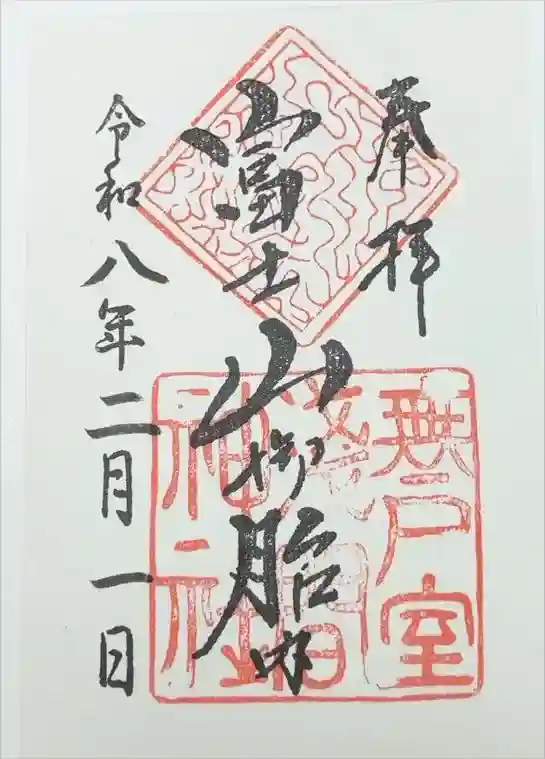 奉拝
富士山御胎内
無戸室
浅間
神社
令和八年二月一日